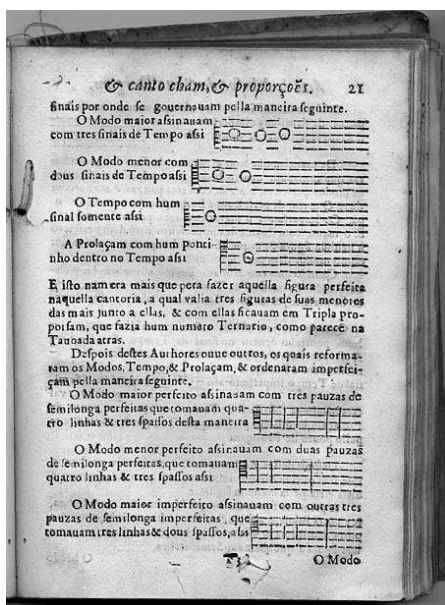 & canto cham, & proporções. 21
sinais por onde se gouernauam pella maneira seguinte.
O Modo maior assinauam
com tres sinais de Tempo assi
O Modo menor com
dous sinais de Tempo assi
O Tempo com hum
sinal somente assi
A Prolaçam com hum ponti-
nho dentro no Tempo assi
E isto nam era mais que pera fazer aquella figura perfeita
naquella cantoria, a qual valia tres figuras de suas menores
das mais junto a ellas, & com ellas ficauam em Tripla pro-
porsam, que fazia hum numero Ternario, como parece na
Tauoada atras.
Despois destes Authores ouue outros, os quais reforma-
ram os Modos, Tempo, & Prolaçam, & ordenaram imperfei-
çam pella maneira seguinte.
O Modo maior perfeito assinauam com tres pauzas de
semilonga perfeitas que tomauam qua-
tro linhas & tres spassos desta maneira
O Modo menor perfeito assinauam com duas pauzas
de semilonga perfeitas, que tomauam
quatro linhas & tres spassos assi
O Modo maior imperfeito assinauam com outras tres
pauzas de semilonga imperfeitas, que
tomauam tres linhas & dous spassos, assi
O Modo